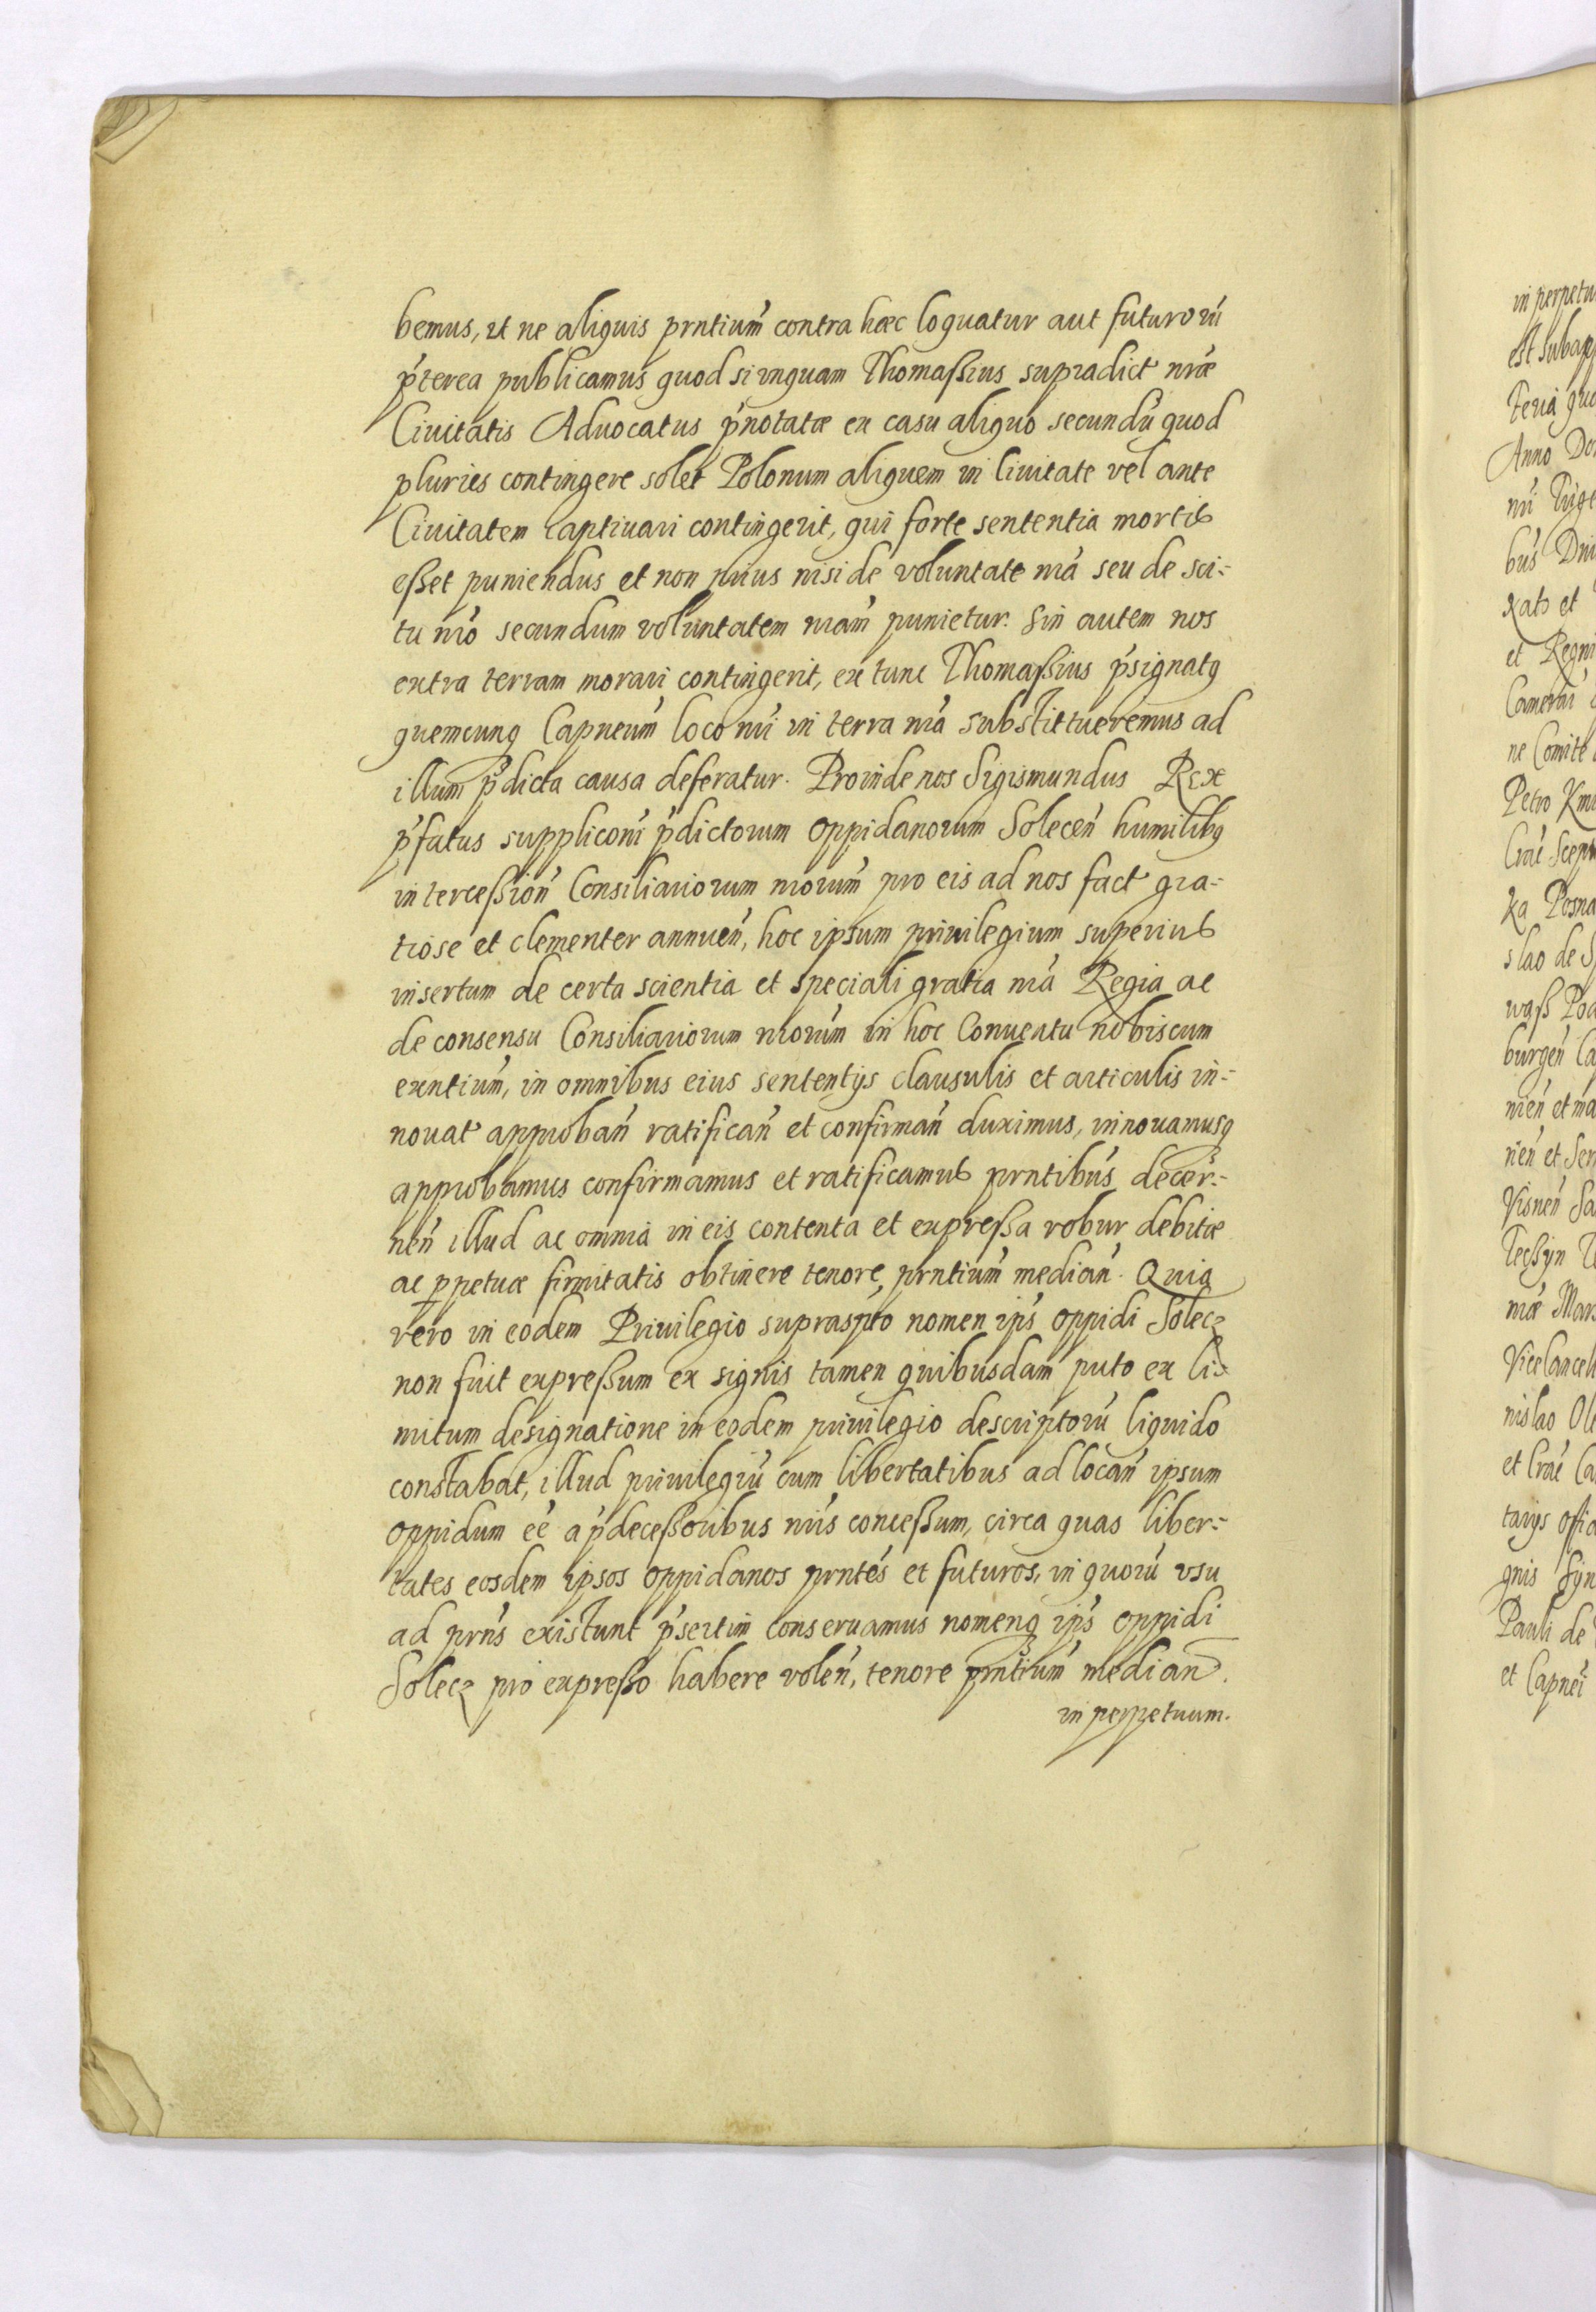 bemus, ut ne aliquis prntium̃ contra hæc loquatur aut futurorũ
p̃terea publicamus quod si unquam Thomaßius supradict nr̃æ
Ciuitatis Aduocatus p̃notatæ ex casu aliquo secundũ quod
pluries contingere solet Polonum aliquem in Ciuitate vel ante
Ciuitatem captiuari contingerit, qui forte sententia mortis
eßet puniendus et non prius nisi de voluntate nr̃a seu de sci-
tu nr̃o secundum voluntatem nr̃am punietur. Sin autem nos
extra terram morari contingerit, ex tunc Thomaßius p̃signatꝗ
quemcunqꝫ Capneum̃ loco nr̃i in terra nr̃a substittueremus ad
illum p̃dicta causa deferatur. Proinde nos Sigismundus Rex
p̃fatus supplicoñi p̃dictorum oppidanorum Solecen̄ humilibꝗ
interceßion̄ Consiliariorum nr̃orum̃ pro eis ad nos fact gra-
tiose et clementer annuen̄, hoc ipsum priuilegium superius
insertum de certa scientia et speciali gratia nr̃a Regia ac
de consensu Consiliariorum nr̃orum̃ in hoc Conuentu nobiscum
exntium̃, in omnibus eius sententijs clausulis et articulis in-
nouat approban̄ ratifican̄ et confirman̄ duximus, innouamusqꝫ
approbamus confirmamus et ratificamus prntibus̃ decer-
nen̄ illud ac omnia in eis contenta et expreßa robur debitæ
ac ꝑpetuæ firmitatis obtinere tenore prntium̃ median̄. Quia
vero in eodem Priuilegio suprasp̃to nomen ip̃s oppidi Solecz
non fuit expreßum ex signis tamen quibusdam puto ex li-
mitum designatione in eodem priuilegio descriptorũ liquido
constabat, illud priuilegiũ cum libertatibus ad locan̄ ipsum
oppidum eẽ a p̃deceßoribus nr̃is conceßum, circa quas liber-
tates eosdem ipsos oppidanos prntes̃ et futuros, in quorũ vsu
ad prns̃ existunt p̃sertim conseruamus nomenqꝫ ip̃s oppidi
Solecz pro expreßo habere volen̄, tenore prntium̃ median̄.
in perpetuum.
in perpetu
est subap
Anno Do
et Regni
ne Comite
Petro Kmi
ka Posna
slao de S
nislao Ole
Pauli de
et Capnei